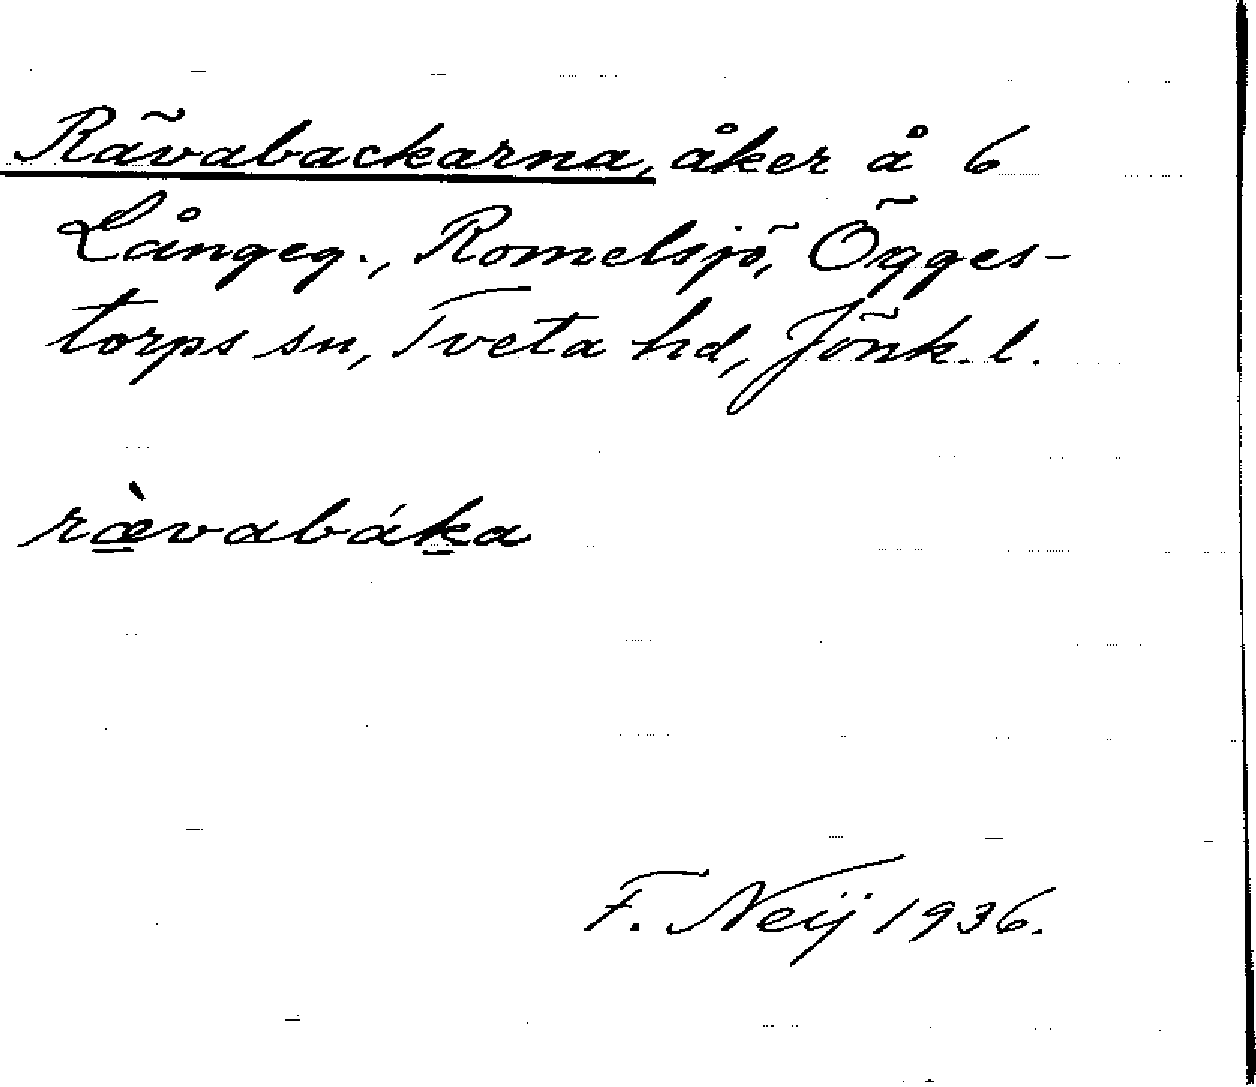 Rävabackarna, åker å 6
Långeg., Romelsjö, Ögges-
torps sn, Tveta hd, Jönk. l.
ræ̀vabáka
F. Neij 1936.